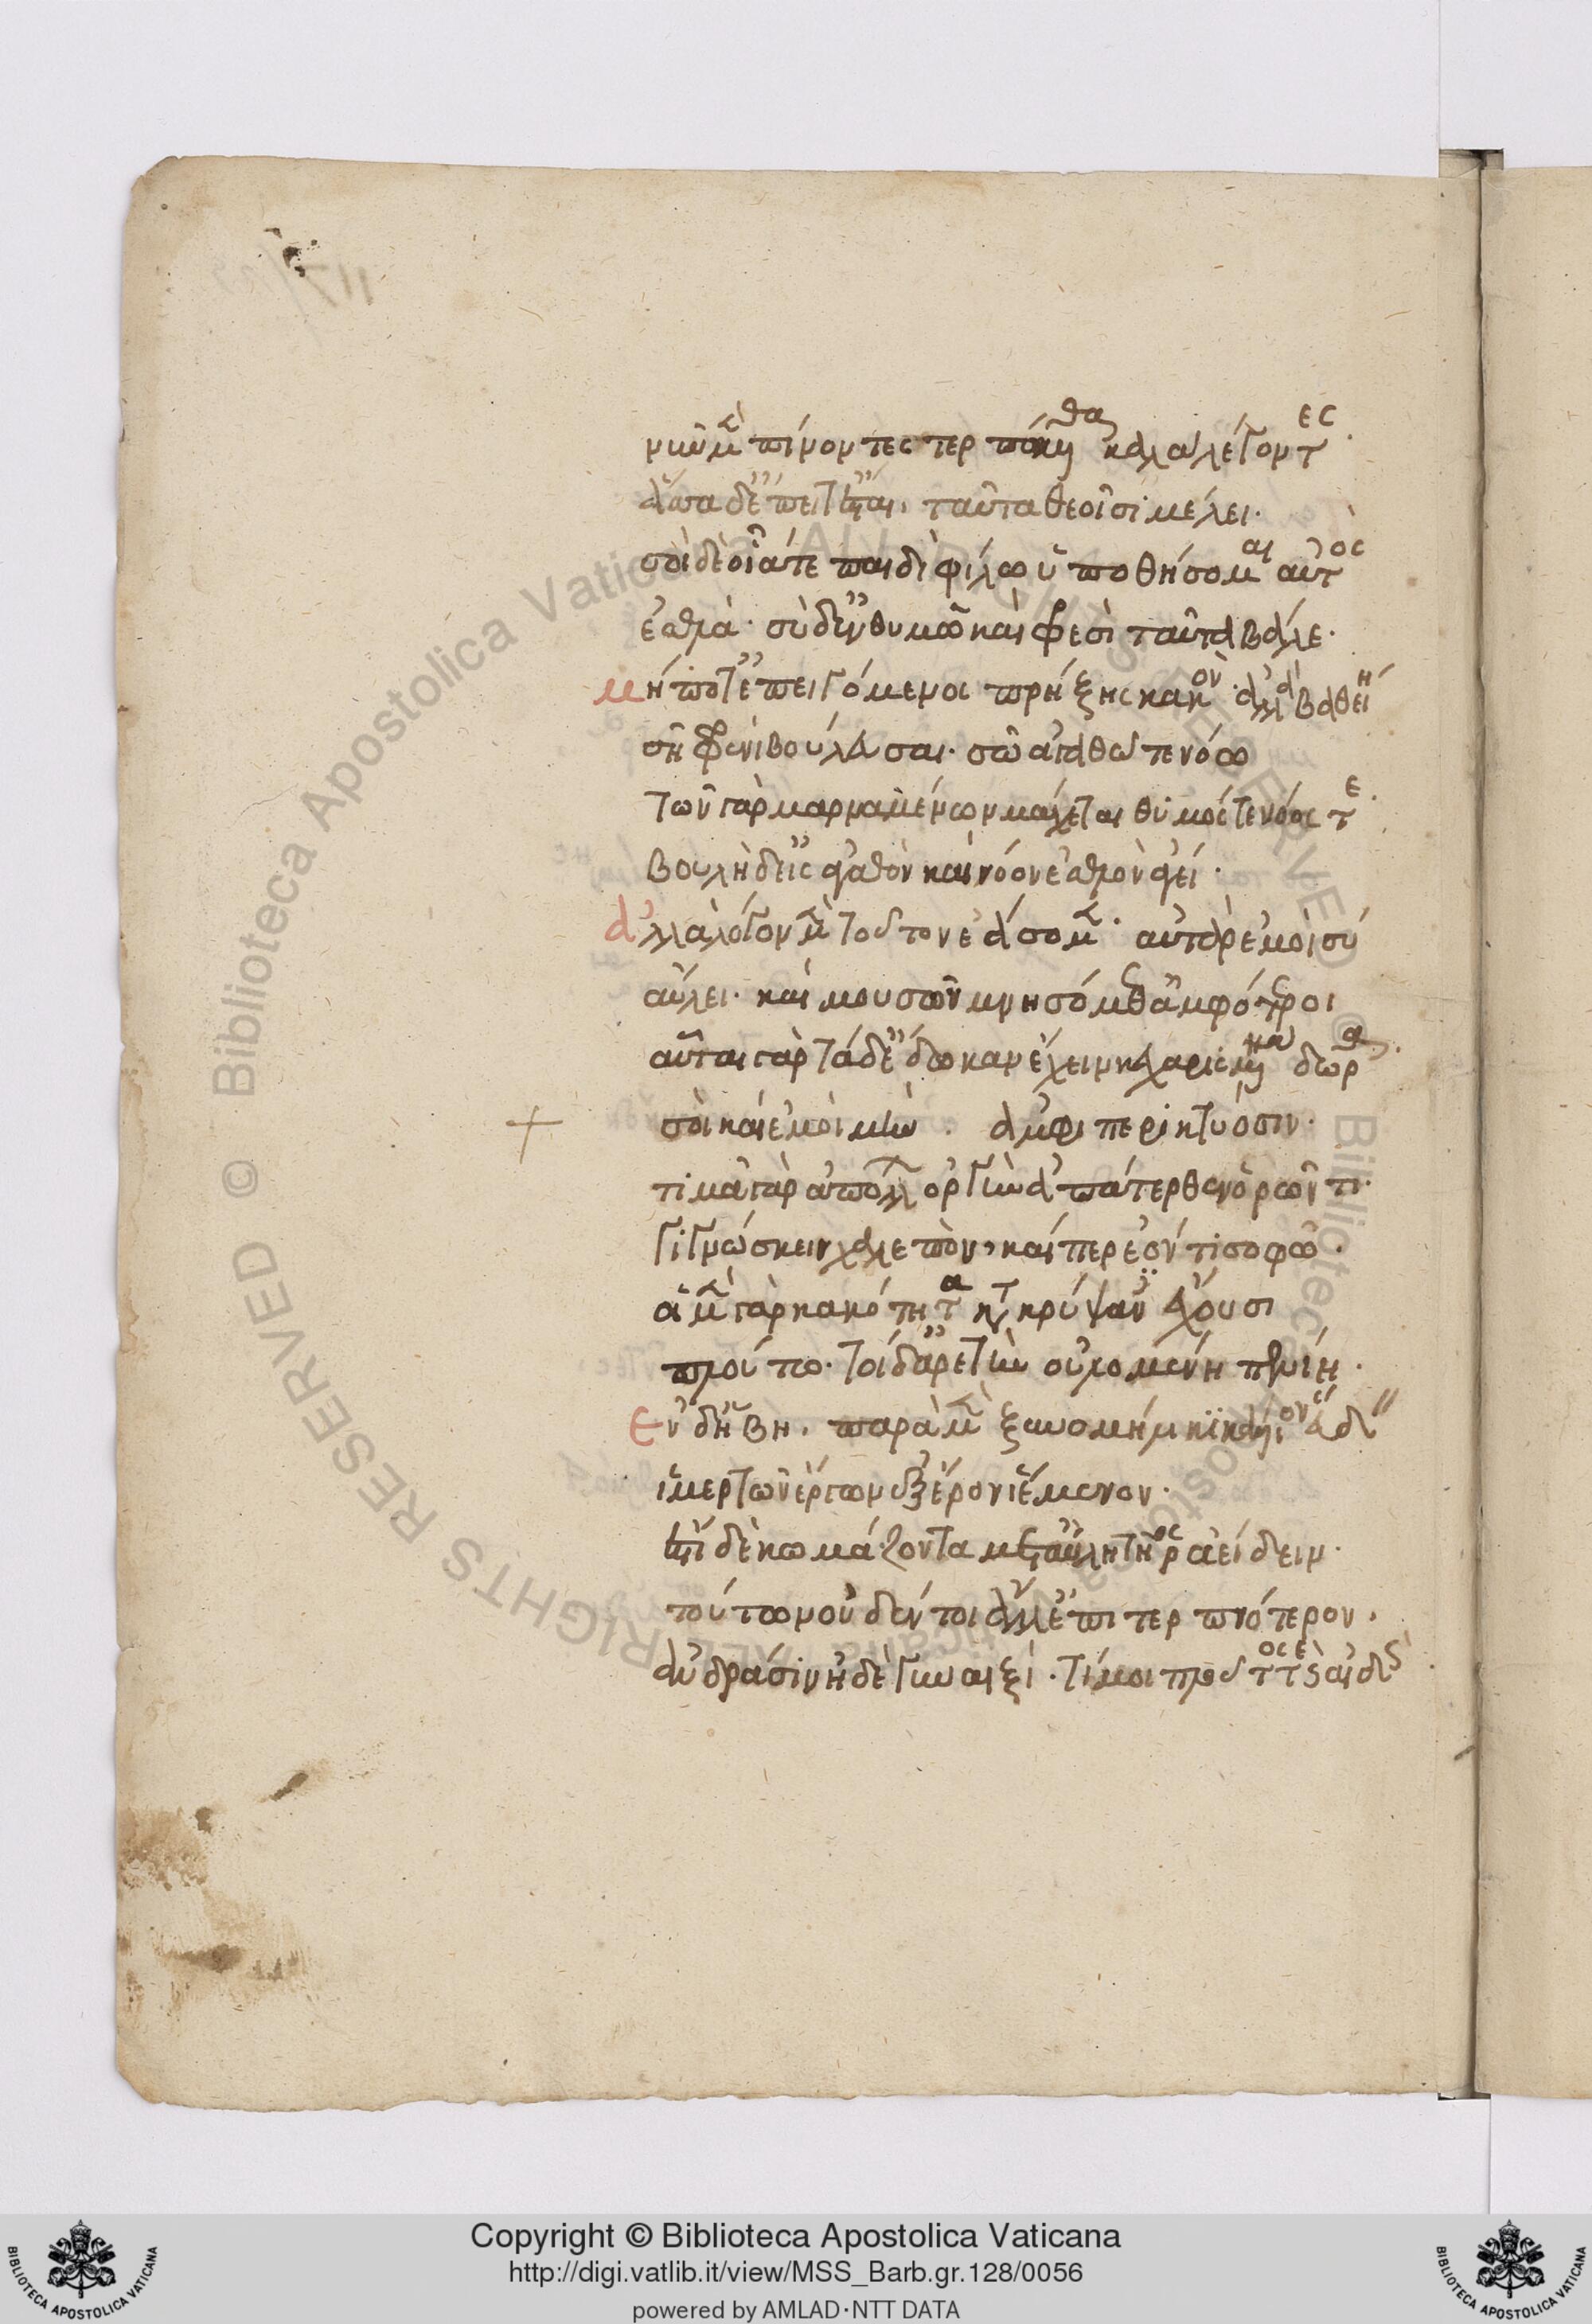 νῦν μὲν πίνοντες τερπώμεθα καλὰ λέγοντες·
ἅσσα δ' ἔπειτ' ἔσται, ταῦτα θεοῖσι μέλει·
σοὶ δ' ἐγὼ οἷά τε παιδὶ φίλῳ ὑποθήσομαι αὐτὸς
ἐσθλά· σὺ δ' ἐν θυμῷ καὶ φρεσὶ ταῦτα βάλε·
μήποτ' ἐπειγόμενος πρήξῃς κακὸν· ἀλλὰ βαθείῃ
σῇ φρενὶ βούλευσαι· σῷ ἀγαθῷ τε νόῳ
τῶν γὰρ μαρναμένων μάχεται θυμός τε νόος τε·
βουλὴ δ' εἰς ἀγαθὸν καὶ νόον ἐσθλὸν ἄγει·
ἀλλὰ λόγον μὲν τοῦτον ἐάσομεν· αὐτὰρ ἐμοὶ σὺ
αὔλει· καὶ μουσῶν μνησόμεθ' ἀμφότεροι
αὗται γὰρ τάδ' ἔδωκαν ἔχειν κεχαρισμένα δῶρα·
σοὶ καὶ ἐμοὶ μὴν· ἀμφιπερικτύοσιν·
τιμαγόρα πολλῶν ὀργὴν ἀπάτερθεν ὁρῶντι·
γιγνώσκειν χαλεπὸν, καίπερ ἐόντι σοφῷ·
οἱ μὲν γὰρ κακότητα κατακρύψαντες ἔχουσι
πλούτῳ· τοὶ δ' ἀρετὴν οὐλομένῃ πενίῃ·
Ἐν δ' ἥβῃ· παρὰ μὲν ξὺν ὁμήλικι κάλλιον εὕδειν
ἱμερτῶν ἔργων ἐξ ἔρον ἱέμενον·
ἔστι δὲ κωμάζοντα μετ' αὐλητῆρος ἀείδειν·
τούτων οὐδέν τοι ἄλλ' ἔπι τερπνότερον·
ἀνδράσιν ἠδὲ γυναιξί· τί μοι πλοῦτός τε καὶ αἰδώς·
Copyright © Biblioteca Apostolica Vaticana
http://digi.vatlib.it/view/MSS_Barb.gr.128/0056
powered by AMLAD·NTT DATA